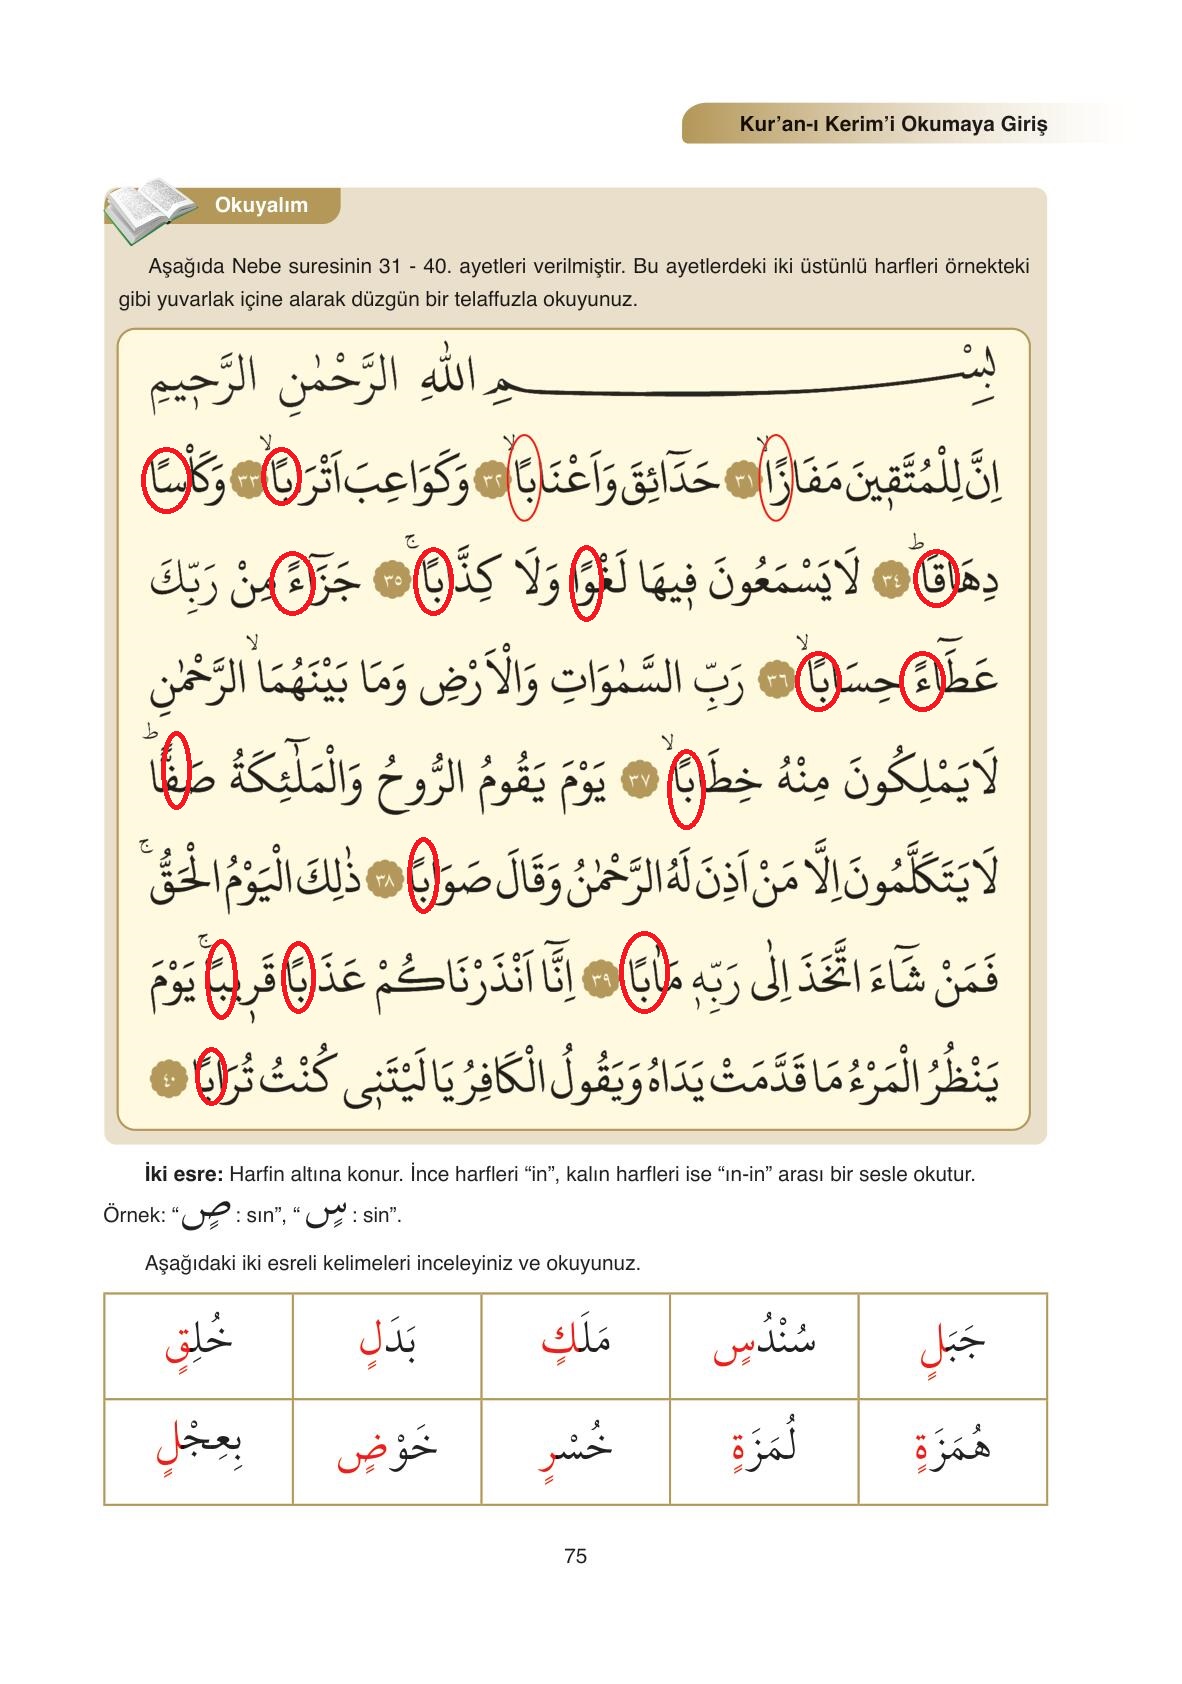 Kur’an-ı Kerim’i Okumaya Giriş
Okuyalım
Aşağıda Nebe suresinin 31 - 40. ayetleri verilmiştir. Bu ayetlerdeki iki üstünlü harfleri örnekteki
gibi yuvarlak içine alarak düzgün bir telaffuzla okuyunuz.
بِسْمِ اللّٰهِ الرَّحْمٰنِ الرَّح۪يمِ
اِنَّ لِلْمُتَّق۪ينَ مَفَازًاۙ ﴿٣١﴾ حَدَٓائِقَ وَاَعْنَابًاۙ ﴿٣٢﴾ وَكَوَاعِبَ اَتْرَابًاۙ ﴿٣٣﴾ وَكَأْسًا
دِهَاقًاۜ ﴿٣٤﴾ لَا يَسْمَعُونَ ف۪يهَا لَغْوًا وَلَا كِذَّابًاۚ ﴿٣٥﴾ جَزَٓاءً مِنْ رَبِّكَ
عَطَٓاءً حِسَابًاۙ ﴿٣٦﴾ رَبِّ السَّمٰوَاتِ وَالْاَرْضِ وَمَا بَيْنَهُمَاۙ الرَّحْمٰنِ
لَا يَمْلِكُونَ مِنْهُ خِطَابًاۙ ﴿٣٧﴾ يَوْمَ يَقُومُ الرُّوحُ وَالْمَلٰٓئِكَةُ صَفًّاۜ
لَا يَتَكَلَّمُونَ اِلَّا مَنْ اَذِنَ لَهُ الرَّحْمٰنُ وَقَالَ صَوَابًا ﴿٣٨﴾ ذٰلِكَ الْيَوْمُ الْحَقُّۚ
فَمَنْ شَٓاءَ اتَّخَذَ اِلٰى رَبِّه۪ مَاٰبًا ﴿٣٩﴾ اِنَّٓا اَنْذَرْنَاكُمْ عَذَابًا قَر۪يبًاۚ يَوْمَ
يَنْظُرُ الْمَرْءُ مَا قَدَّمَتْ يَدَاهُ وَيَقُولُ الْكَافِرُ يَا لَيْتَن۪ي كُنْتُ تُرَابًا ﴿٤٠﴾
İki esre: Harfin altına konur. İnce harfleri “in”, kalın harfleri ise “ın-in” arası bir sesle okutur.
Örnek: “صٍ : sın”, “سٍ : sin”.
Aşağıdaki iki esreli kelimeleri inceleyiniz ve okuyunuz.
جَبَلٍ سُنْدُسٍ مَلَكٍ بَدَلٍ خُلِقٍ
هُمَزَةٍ لُمَزَةٍ خُسْرٍ خَوْضٍ بِعِجْلٍ
75